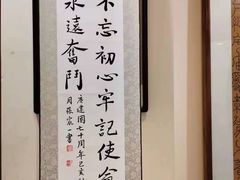 不忘初心牢記使命
永遠奮鬥
建國七十周年己亥
月張一書